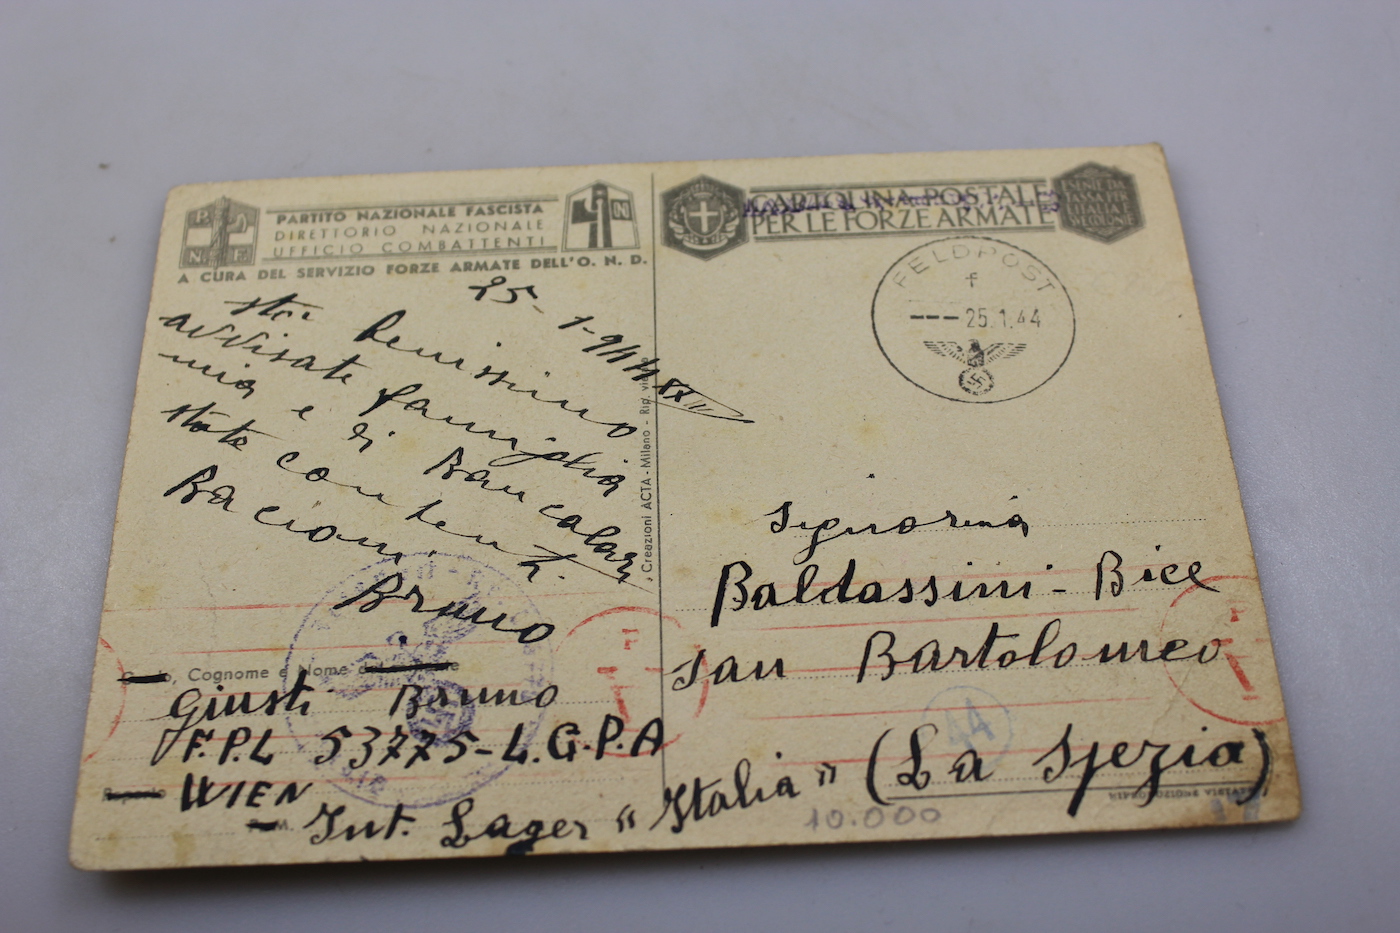 P N
N F
PARTITO NAZIONALE FASCISTA
DIRETTORIO NAZIONALE
UFFICIO COMBATTENTI
A CURA DEL SERVIZIO FORZE ARMATE DELL'O. N. D.
CARTOLINA POSTALE
PER LE FORZE ARMATE
ESENTE DA
TASSA PER
FELDPOST
f
--- 25.1.44
25-1-944 XXII
sto benissimo
avvisate famiglia
mia e di Bancalari
state contenti.
Bacioni
Bruno
Creazioni ACTA - Milano - Rip. vie
Signorina
Baldassini - Bice
San Bartolomeo
(La Spezia)
44
, Cognome e Nome
Giusti Bruno
F.P.L 53775-L.G.P.A
WIEN
Int. Lager "Italia"
RIPRODUZIONE VIETATA
10.000